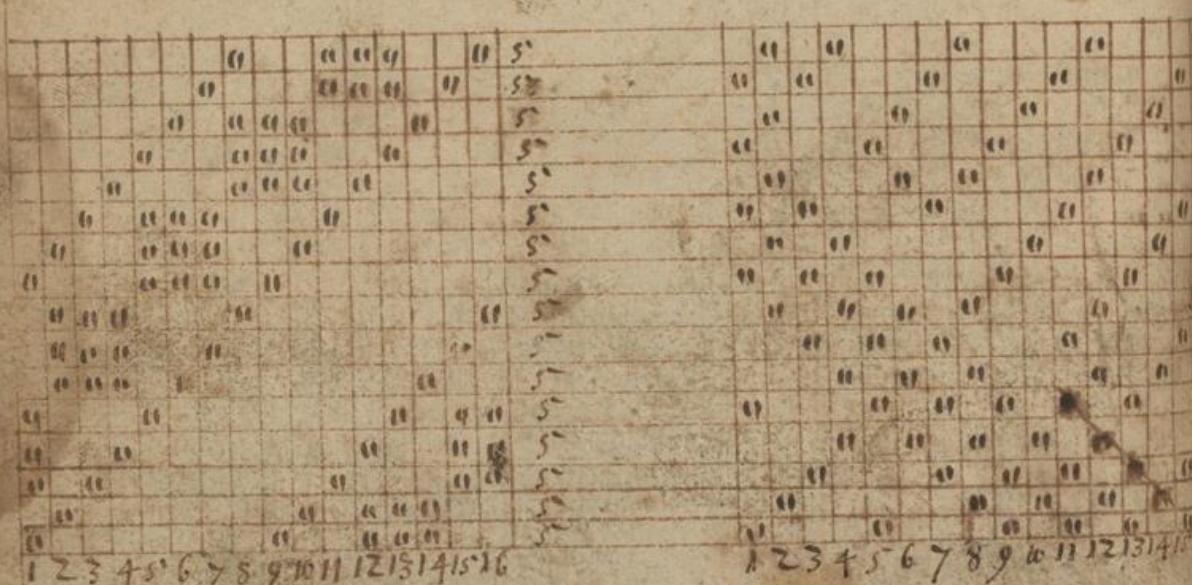 5
5
5
5
5
5
5
5
5
5
5
5
5
5
5
5
1 2 3 4 5 6 7 8 9 10 11 12 13 14 15 16
1 2 3 4 5 6 7 8 9 10 11 12 13 14 15